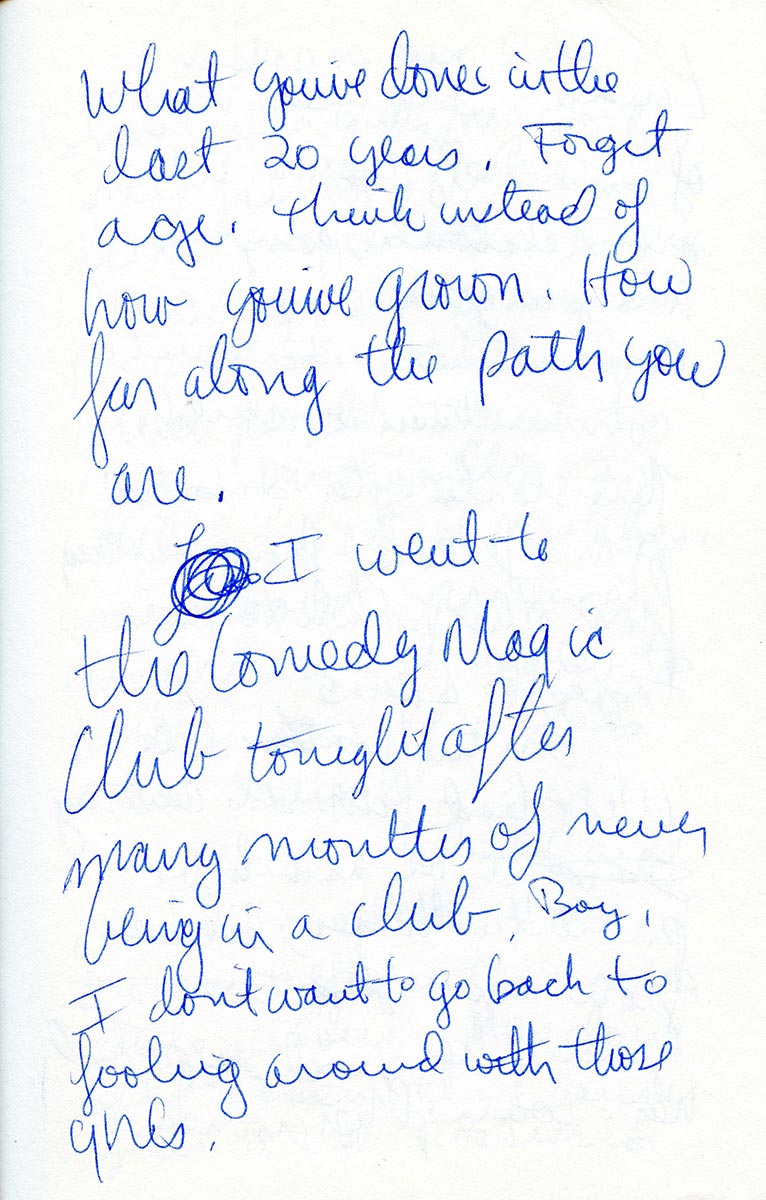 What you've done in the
last 20 years. Forget
age. Think instead of
how you've grown. How
far along the path you
are.
I went to
the Comedy Magic
Club tonight after
many months of never
being in a club. Boy,
I don't want to go back to
fooling around with those
girls.